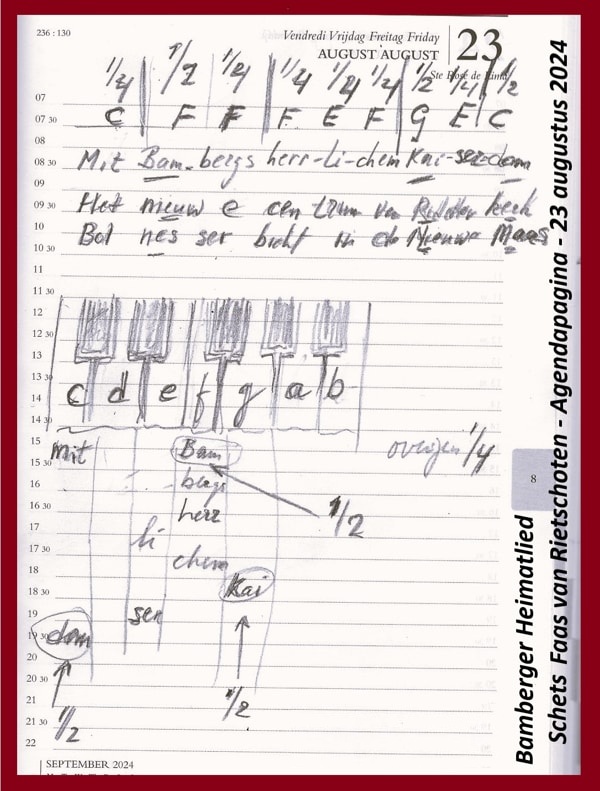 236 : 130
Vendredi Vrijdag Freitag Friday
AUGUST AUGUST
23
Ste Rose de Lima
1/4 1/2 1/4 1/4 1/4 1/4 1/2 1/4 1/2
C F F F E F G E C
Mit Bam-bergs herr-li-chem Kai-ser-dom
Het nieuw e een van
Bol nes ser bocht in de Nieuwe Maas
07
07 30
08
08 30
09
09 30
10
10 30
11
11 30
12
12 30
13
13 30
14
14 30
15
15 30
16
16 30
17
17 30
18
18 30
19
19 30
20
20 30
21
21 30
22
c d e f g a b
Mit
Bam
bergs
herr
li
chem
Kai
ser
dom
overigen 1/4
1/2
1/2
1/2
8
SEPTEMBER 2024
Bamberger Heimatlied
Schets Faas van Rietschoten - Agendapagina - 23 augustus 2024